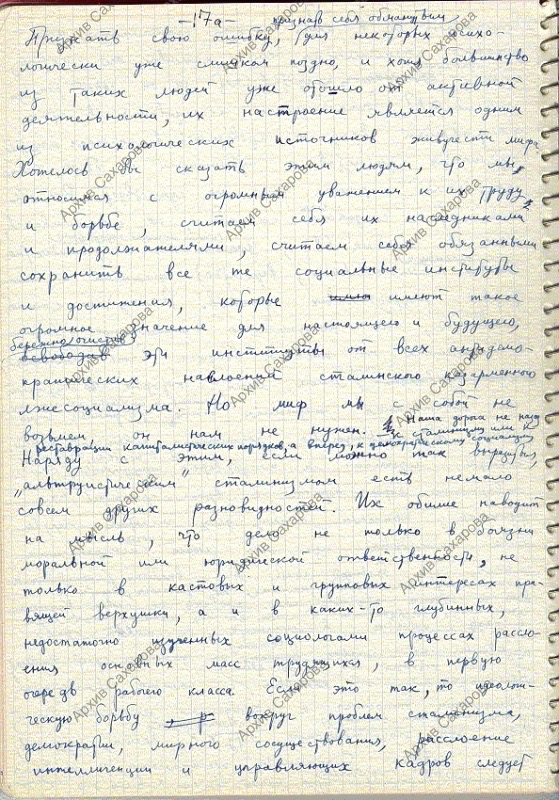 -17а- признав себя обманутым
Признать свою ошибку, для некоторых психо-
логически уже слишком поздно, и хотя большинство
из таких людей уже отошло от активной
деятельности, их настроение является одним
из психологических источников живучести мифа.
Хотелось бы сказать этим людям, что мы,
относимся с огромным уважением к их труду
и борьбе, считаем себя их наследниками
и продолжателями, считаем себя обязанными
сохранить все те социальные институты
и достижения, которые имеют такое
огромное значение для настоящего и будущего,
бережно очистив
освободив эти институты от всех антидемо-
кратических наслоений сталинского казарменного
лжесоциализма. Но миф мы с собой не
возьмем, он нам не нужен. Наша дорога не назад
к сталинизму или к
реставрации капиталистических порядков, а вперед, к демократическому социализму
Наряду с этим, если можно так выразиться,
"альтруистическим" сталинизмом есть немало
совсем других разновидностей. Их обилие наводит
на мысль, что дело не только в боязни
моральной или юридической ответственности, не
только в кастовых и групповых интересах пра-
вящей верхушки, а и в каких-то глубинных,
недостаточно изученных социологами процессах рассло-
ения основных масс трудящихся, в первую
очередь рабочего класса. Если это так, то идеологи-
ческую борьбу вокруг проблем сталинизма,
демократии, мирного сосуществования, расслоение
интеллигенции и управляющих кадров следует
Архив Сахарова